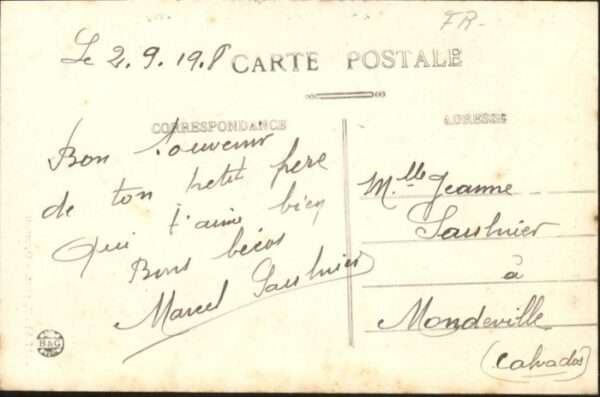 FR-
Le 2.9.19.8
CARTE POSTALE
CORRESPONDANCE
ADRESSE
Bon Souvenir
de ton petit père
Qui t'aime bien
Bons bécos
Marcel Saulnier
Mlle Jeanne
Saulnier
à
Mondeville
(Calvados)
B&G